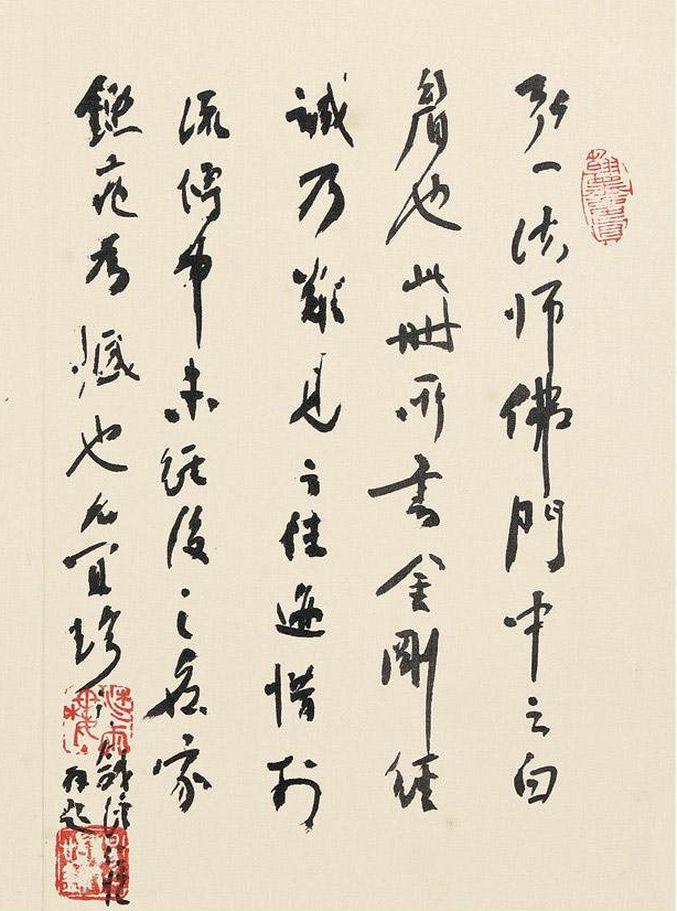 弘一法师佛門中之白
眉也此冊所書金剛經
誠乃難見之佳迹惜於
流傳中未經後之家
鑑為憾也尤宜珍